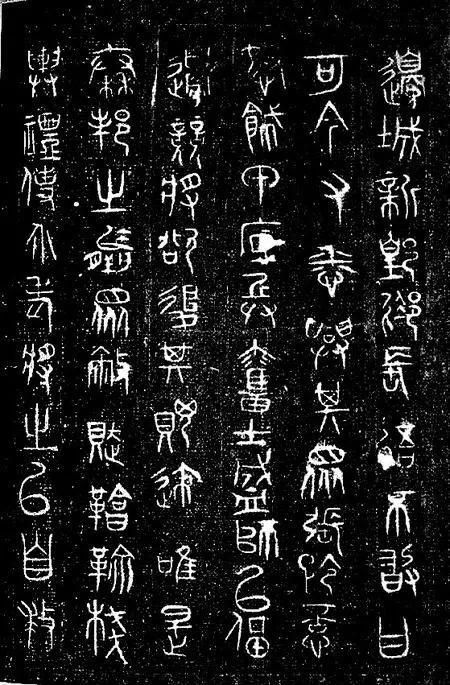 邊城新長不敢曰
可今又悉興其眾張矜意
怒飾甲底兵奮士盛師以偪
邊競將欲復其賕迹唯是
秦邦之羸眾敝賦鞈䩱棧
輿禮使介老將之以自救